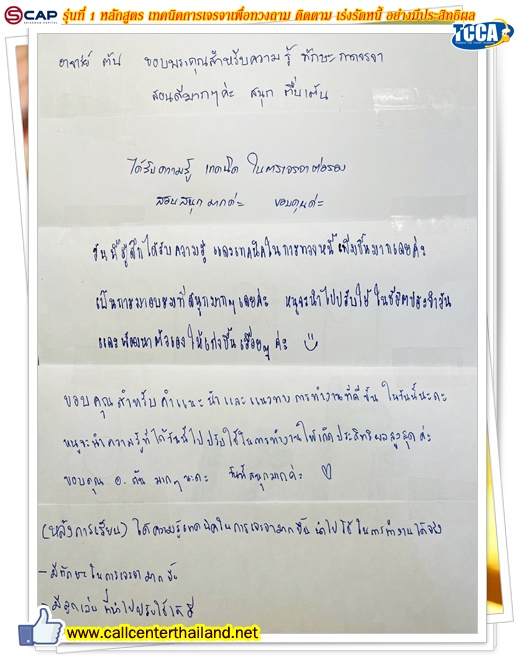 SCAP
รุ่นที่ 1 หลักสูตร เทคนิคการเจรจาเพื่อทวงถาม ติดตาม เร่งรัดหนี้ อย่างมีประสิทธิผล
TCCA
อาจารย์ ตัน ขอบพระคุณสำหรับความรู้ ทักษะการเจรจา
สอนดีมากๆค่ะ สนุก ตื่นเต้น
ได้รับความรู้ เทคนิค ในการเจรจาต่อรอง
สอนสนุกมากค่ะ ขอบคุณค่ะ
วันนี้รู้สึกได้รับความรู้ และเทคนิคในการทวงหนี้เพิ่มขึ้นมากเลยค่ะ
เป็นการมาอบรมที่สนุกมากๆเลยค่ะ หนูจะนำไปปรับใช้ในชีวิตประจำวัน
และพัฒนาตัวเองให้เก่งขึ้นเรื่อยๆค่ะ
ขอบคุณสำหรับคำแนะนำและแนวทางการทำงานที่ดีขึ้น ในวันนี้นะคะ
หนูจะนำความรู้ที่ได้วันนี้ไปปรับใช้ในการทำงานให้เกิดประสิทธิผลสูงสุดค่ะ
ขอบคุณ อ.ตัน มากๆนะคะ วันนี้สนุกมากค่ะ
(หลังการเรียน) ได้ความรู้เทคนิคในการเจรจามากขึ้น นำไปใช้ในการทำงานได้จริง
- มีทักษะในการเจรจามากขึ้น
- มีลูกเล่นที่นำไปปรับใช้ได้ดี
www.callcenterthailand.net